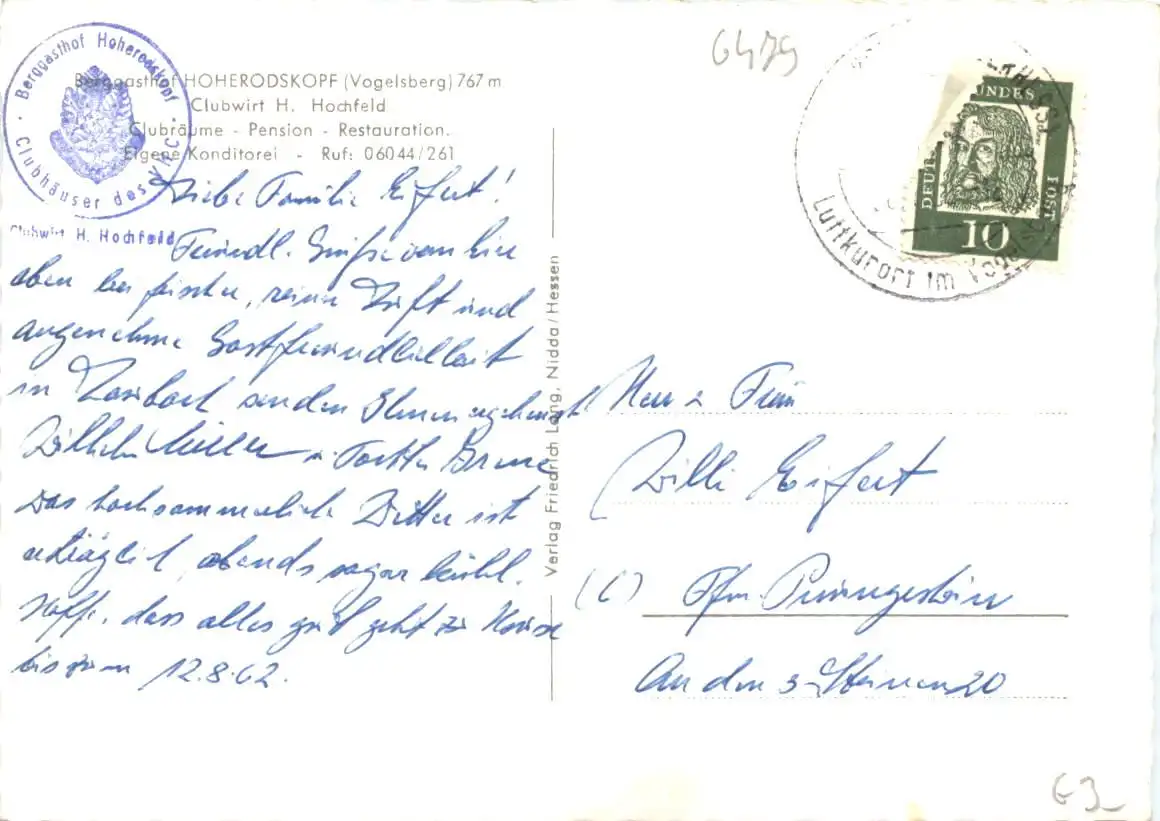 6479
Berggasthof Hoherodskopf
Clubhäuser des V.H.C.
Clubwirt H. Hochfeld
Berggasthof HOHERODSKOPF (Vogelsberg) 767 m
Clubwirt H. Hochfeld
Clubräume - Pension - Restauration.
Eigene Konditorei - Ruf: 06044/261
Liebe Familie Eifert!
Freundl. Grüße von hier
oben bei frischer, reiner Luft und
angenehme Gastfreundlichkeit
in senden Ihnen
Wilhelm Müller u Tochter
Das hochsommerliche Wetter ist
erträglich, abends sogar kühl.
Hoffe, dass alles gut geht zu Hause
bis zum 12.8.62.
Verlag Friedrich Lang, Nidda/Hessen
Luftkurort im
DEUT
UNDES
POST
10
Herr u Frau
Willi Eifert
(6) Ffm. Preungesheim
An den 3-Steinen 20
63